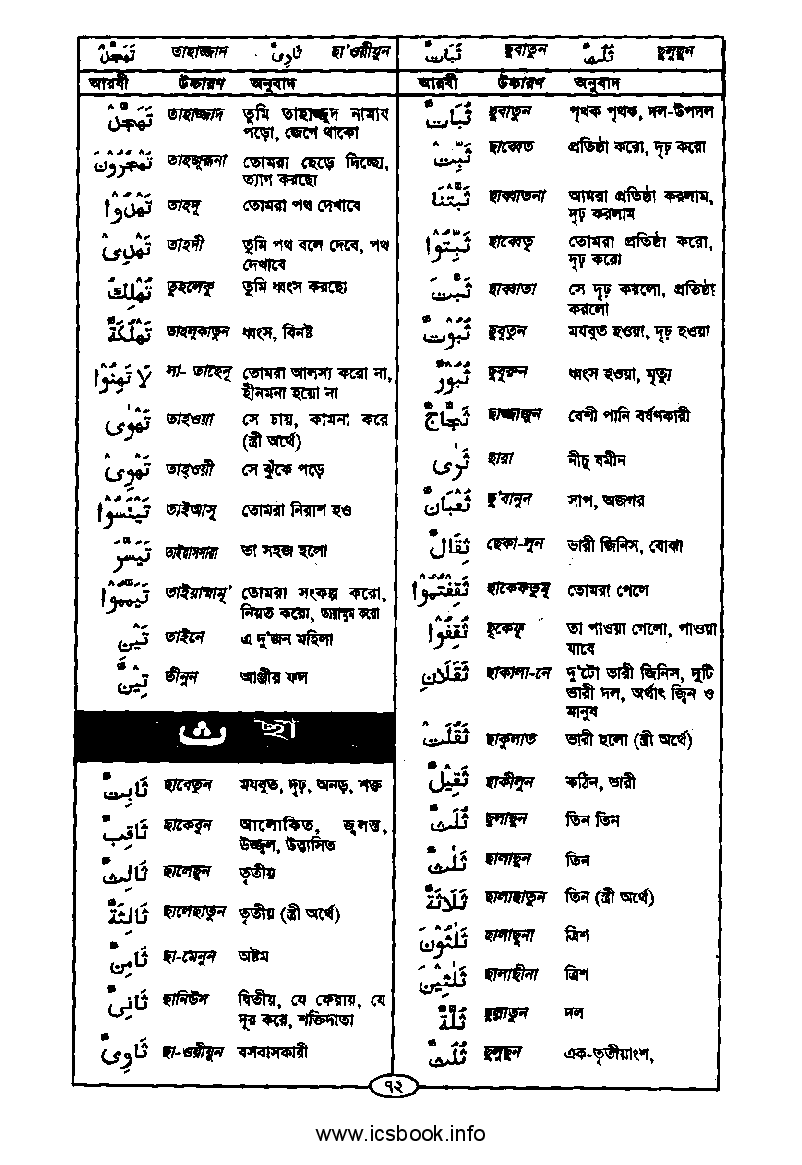 تَهَجَّدْ তাহাজ্জাদ ثَاوِيٌ ছা'ওয়ীয়ুন
আরবী উচ্চারণ অনুবাদ
تَهَجَّدْ তাহাজ্জাদ তুমি তাহাজ্জুদ নামায
পড়ো, জেগে থাকো
تَهْجُرُوْنَ তাহজুরূনা তোমরা ছেড়ে দিচ্ছো,
ত্যাগ করছো
تَهْدُوْا তাহদূ তোমরা পথ দেখাবে
تَهْدِىْ তাহদী তুমি পথ বলে দেবে, পথ
দেখাবে
تُهْلِكُ তুহলেকু তুমি ধ্বংস করছো
تَهْلُكَةٌ তাহলুকাতুন ধ্বংস, বিনষ্ট
لَا تَهِنُوْا লা- তাহেনূ তোমরা আলস্য করো না,
হীনমনা হয়ো না
تَهْوٰى তাহওয়া সে চায়, কামনা করে
(স্ত্রী অর্থে)
تَهْوِىْ তাহ্ওয়ী সে ঝুঁকে পড়ে
تَيْئَسُوْا তাইআসূ তোমরা নিরাশ হও
تَيَسَّرَ তাইয়াসসারা তা সহজ হলো
تَيَمَّمُوْا তাইয়াম্মামূ' তোমরা সংকল্প করো,
নিয়ত করো, তায়াম্মুম করো
تَيْنِ তাইনে এ দু'জন মহিলা
تِيْنٌ তীনুন আঞ্জীর ফল
ث ছা
ثَابِتٌ ছাবেতুন মযবুত, দৃঢ়, অনড়, শক্ত
ثَاقِبٌ ছাকেবুন আলোকিত, জ্বলন্ত,
উজ্জ্বল, উদ্ভাসিত
ثَالِثٌ ছালেছুন তৃতীয়
ثَالِثَةٌ ছালেছাতুন তৃতীয় (স্ত্রী অর্থে)
ثَامِنٌ ছা-মেনুন অষ্টম
ثَانِىْ ছানিউস দ্বিতীয়, যে ফেরায়, যে
দূর করে, শক্তিদাতা
ثَاوِىٌ ছা-ওয়ীয়ুন বসবাসকারী
ثُبَاتٌ ছুবাতুন ثُلُثٌ ছুলুছুন
আরবী উচ্চারণ অনুবাদ
ثُبَاتٌ ছুবাতুন পৃথক পৃথক, দল-উপদল
ثَبِّتْ ছাব্বেত প্রতিষ্ঠা করো, দৃঢ় করো
ثَبَّتْنَا ছাব্বাতনা আমরা প্রতিষ্ঠা করলাম,
দৃঢ় করলাম
ثَبِّتُوْا ছাব্বেতূ তোমরা প্রতিষ্ঠা করো,
দৃঢ় করো
ثَبَّتَ ছাব্বাতা সে দৃঢ় করলো, প্রতিষ্ঠা
করলো
ثُبُوْتٌ ছুবূতুন মযবুত হওয়া, দৃঢ় হওয়া
ثُبُوْرٌ ছুবূরুন ধ্বংস হওয়া, মৃত্যু
ثَجَّاجٌ ছাজ্জাজুন বেশী পানি বর্ষণকারী
ثَرٰى ছারা নীচু যমীন
ثُعْبَانٌ ছু'বানুন সাপ, অজগর
ثِقَالٌ ছেকা-লুন ভারী জিনিস, বোঝা
ثَقِفْتُمُوْا ছাকেফতুমূ তোমরা পেলে
ثُقِفُوْا ছুকেফূ তা পাওয়া গেলো, পাওয়া
যাবে
ثَقَلَانِ ছাকালা-নে দু'টো ভারী জিনিস, দুটি
ভারী দল, অর্থাৎ জ্বিন ও
মানুষ
ثَقُلَتْ ছাকুলাত ভারী হলো (স্ত্রী অর্থে)
ثَقِيْلٌ ছাকীলুন কঠিন, ভারী
ثُلٰثٌ ছুলাছুন তিন তিন
ثَلٰثٌ ছালাছুন তিন
ثَلَاثَةٌ ছালাছাতুন তিন (স্ত্রী অর্থে)
ثَلٰثُوْنَ ছালাছূনা ত্রিশ
ثَلٰثِيْنَ ছালাছীনা ত্রিশ
ثُلَّةٌ ছুল্লাতুন দল
ثُلُثٌ ছুলুছুন এক-তৃতীয়াংশ,
৭২
www.icsbook.info